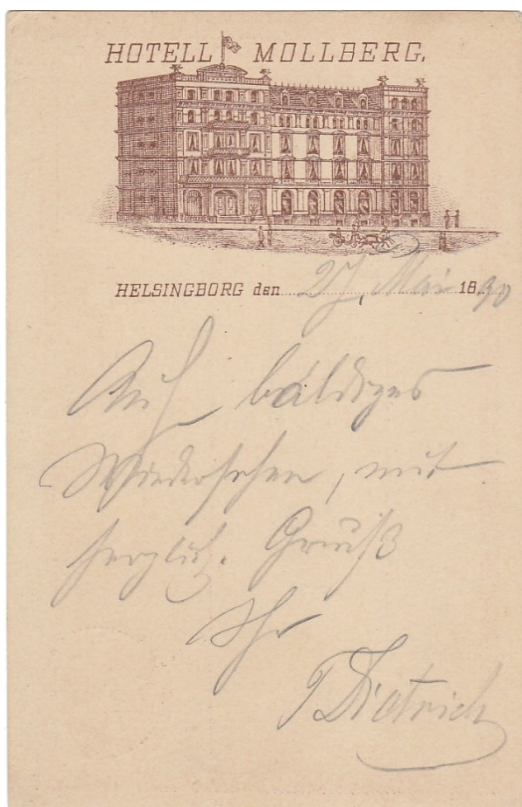 HOTELL MOLLBERG.
HELSINGBORG den 27. Mai 1890
Auf baldiges
Wiedersehen, mit
herzlich. Gruß
Ihr
Dietrich